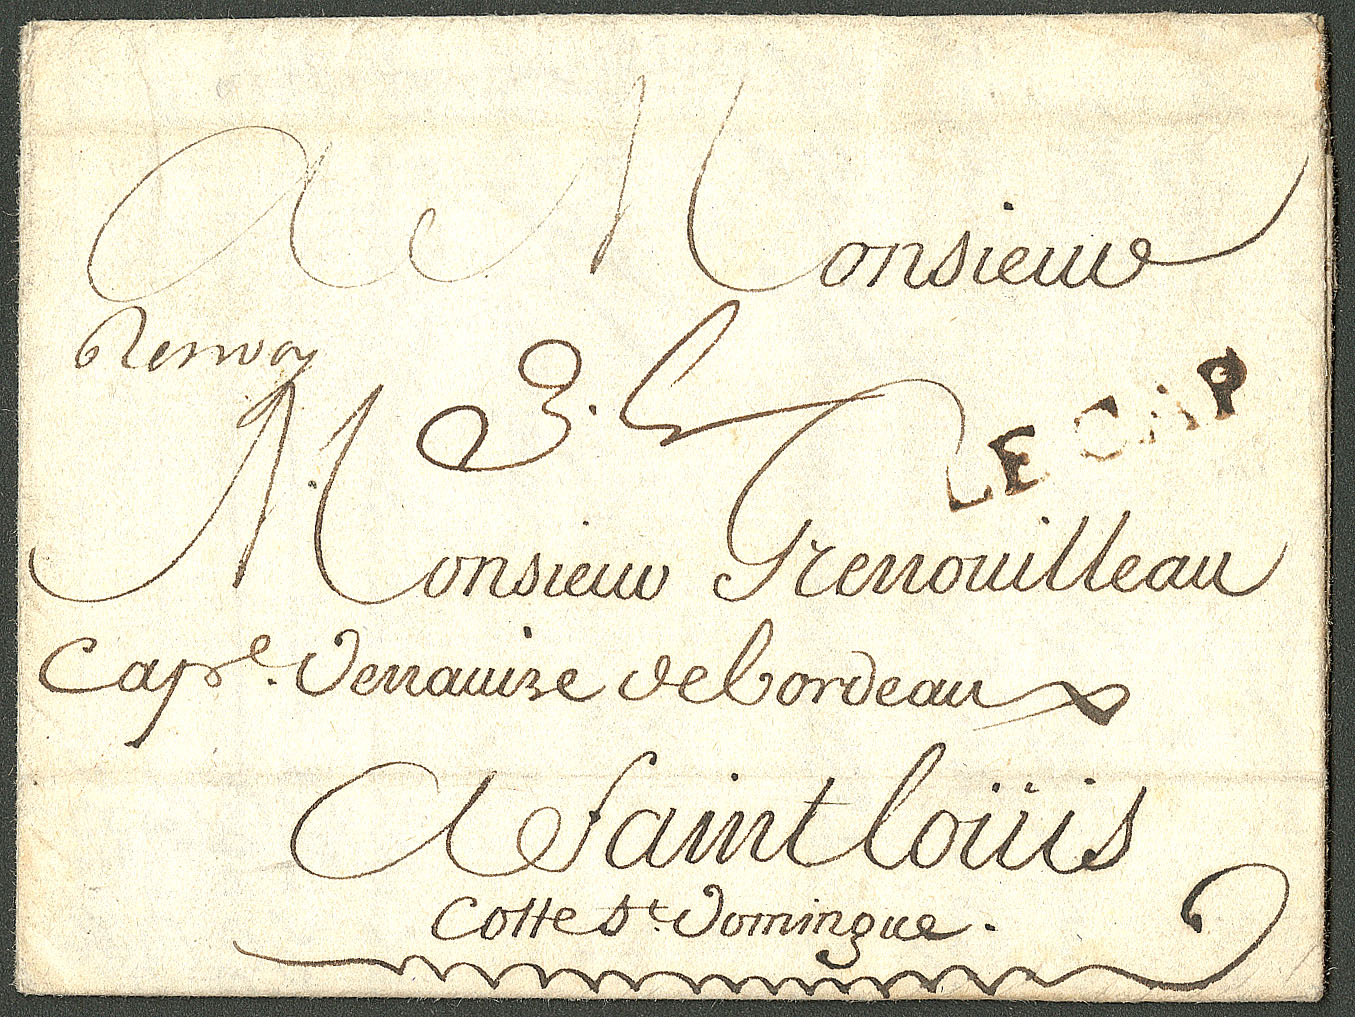 A Monsieur
Renvoy
LE CAP
Monsieur Grenouilleau
Cap.e de navire de bordeaux
A Saint loüis
Coste St. Domingue.